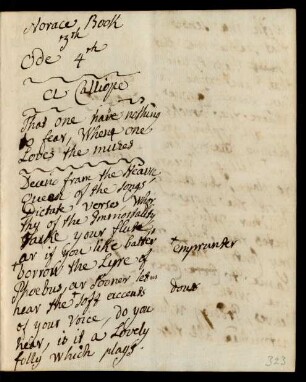 Horace Book
3th
Ode 4th
a Calliope
That one have nothing
to fear, When one
Loves the muses
Decine fram the Heaven
Queen of the songs,
Dictate Verses Wor
thy of the Immortality
take your flute,
or if you like batter
borrow the Lyre of emprunter
Phoebus, or sooner let
hear the soft accents doux
of your Voice, do you
hear, is it a Lovely
folly which plays
323